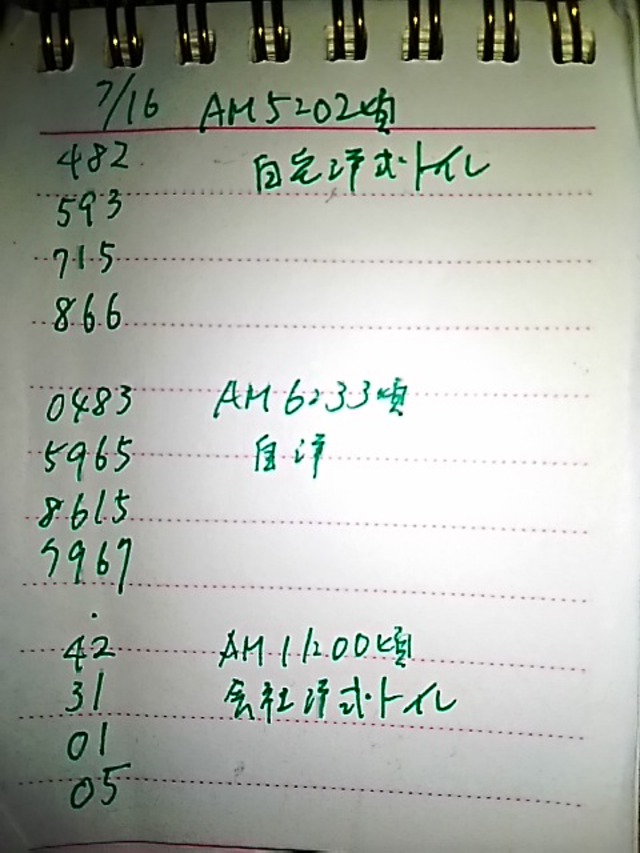 7/16 AM5:02頃
482 自宅洋式トイレ
593
715
866
0483 AM6:33頃
5965 自洋
8615
7967
42 AM11:00頃
31 会社洋式トイレ
01
05